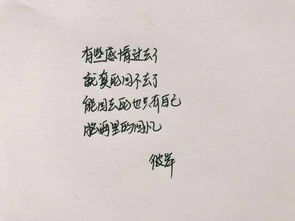 有些感情过去了
就真的回不去了
能回去的也只有自己
脑海里的回忆
彼岸